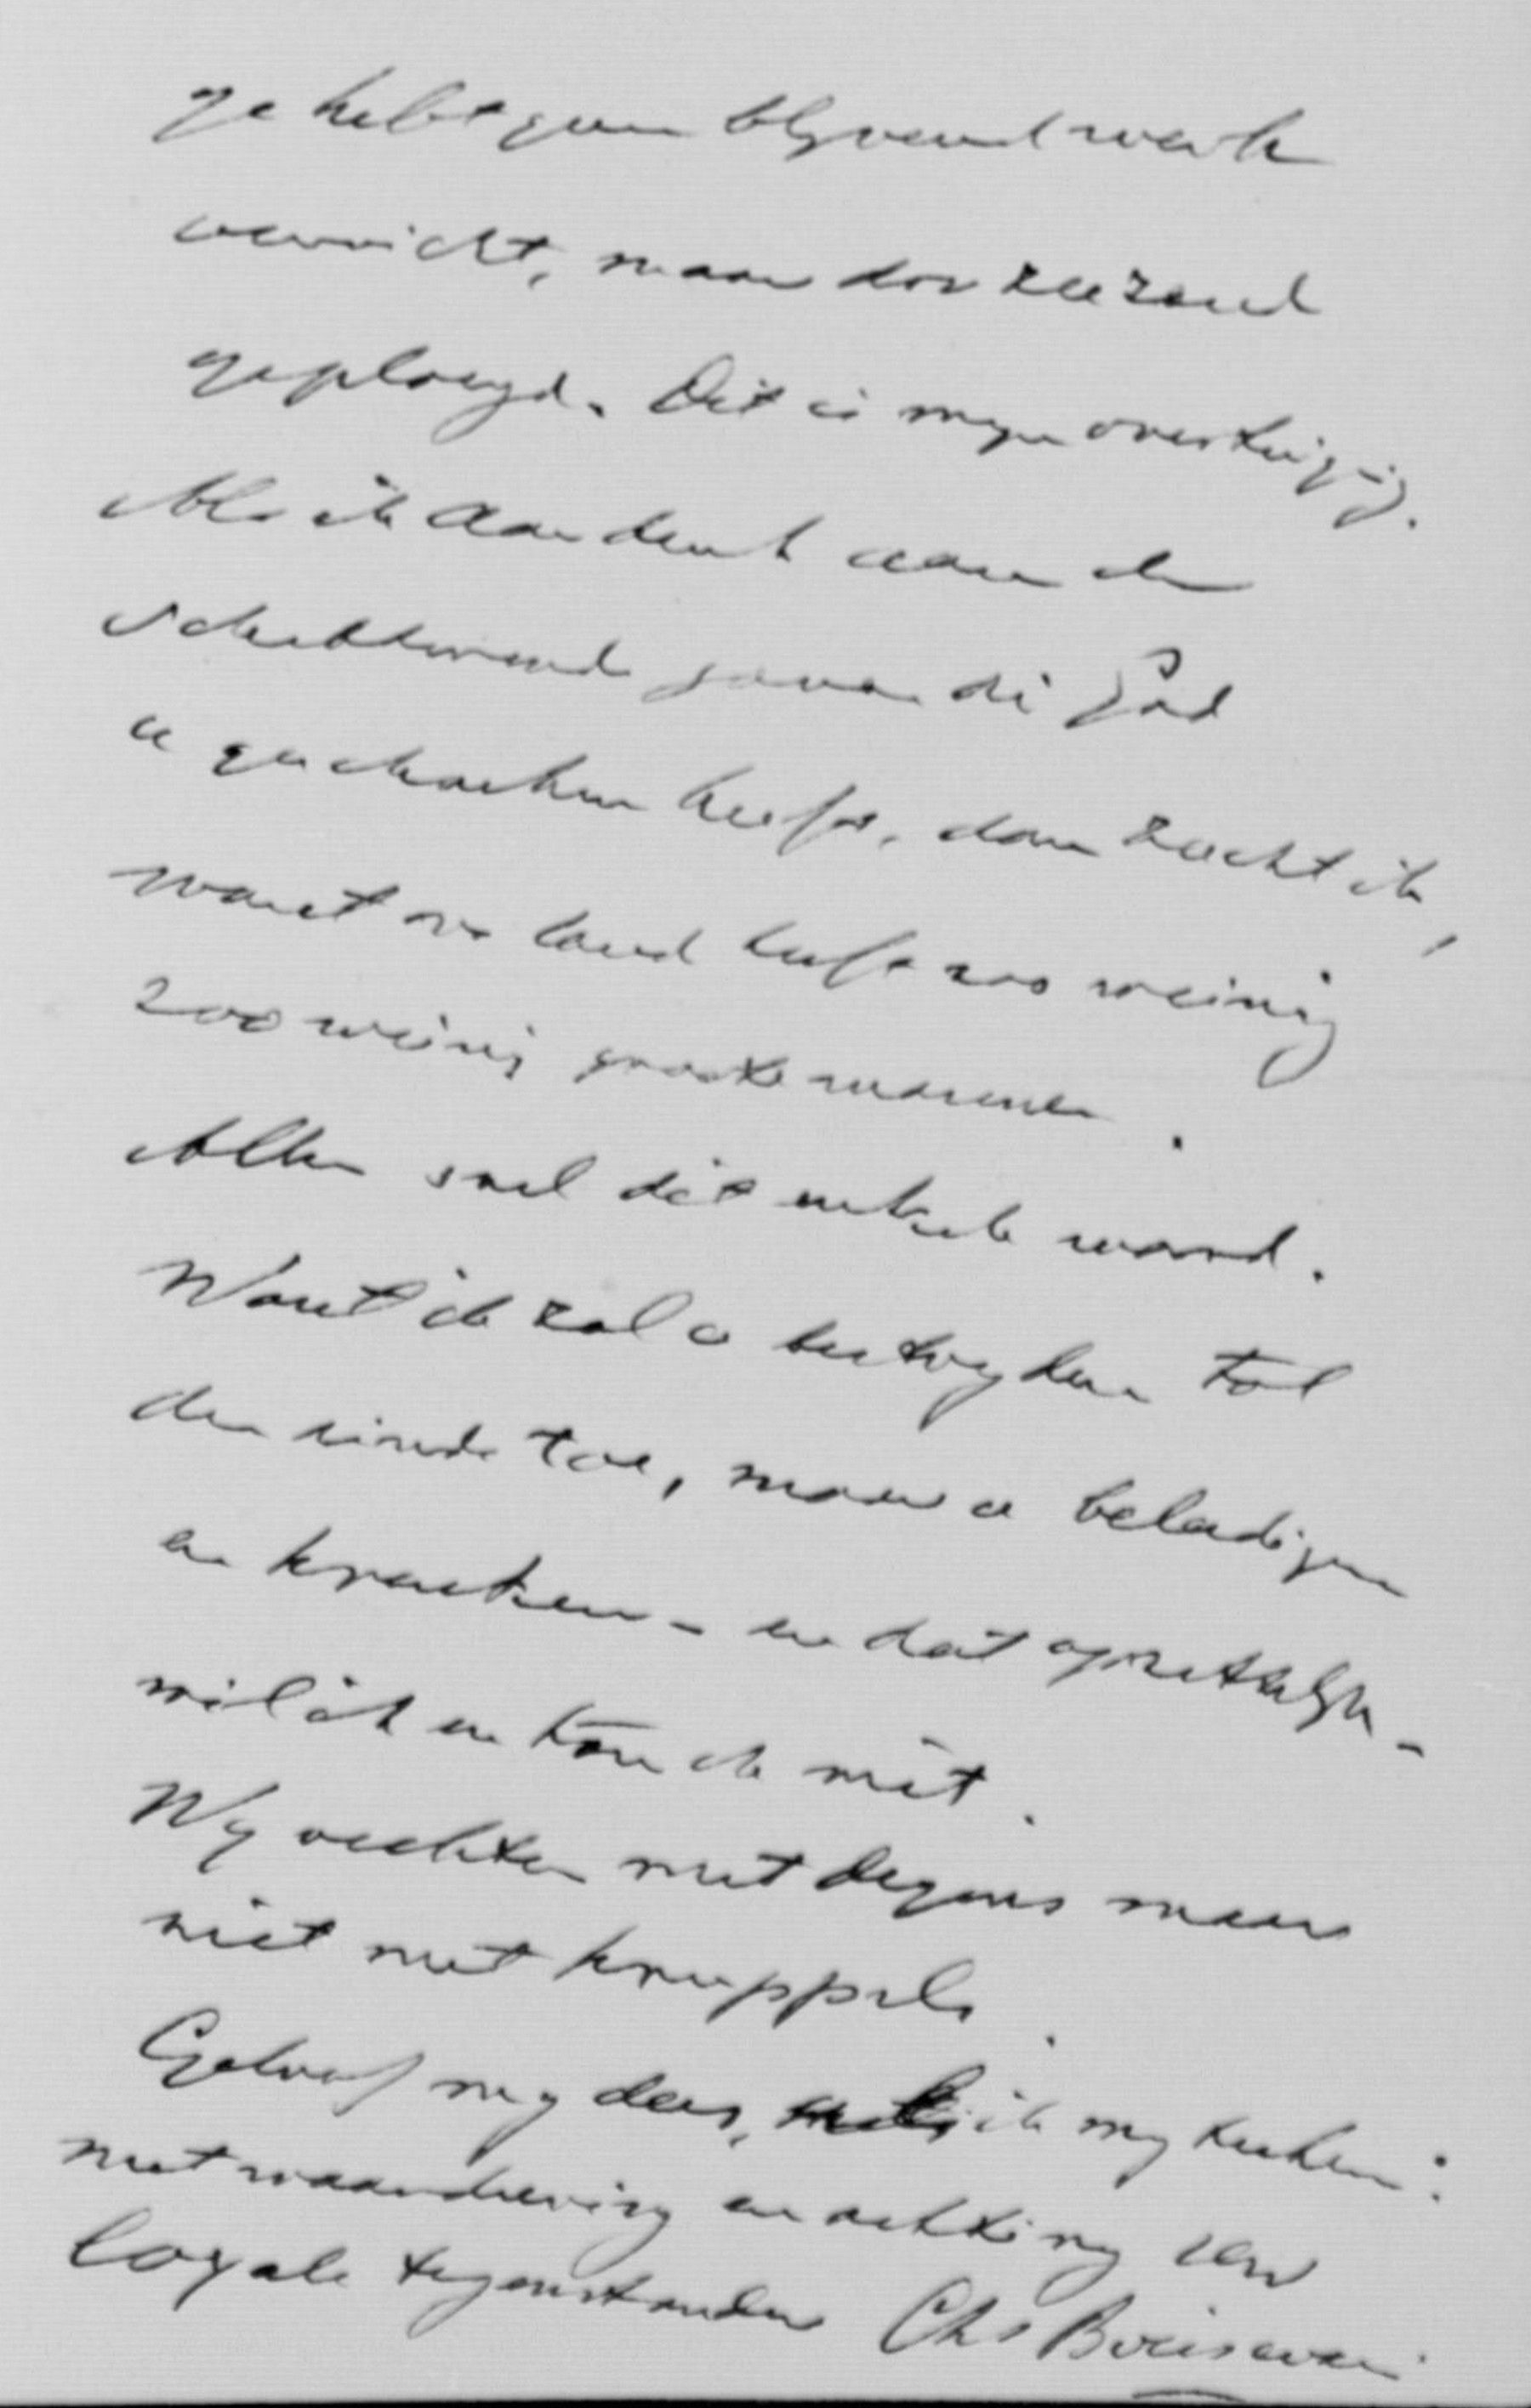 ge hebt geen blyvend werk
verricht, maar dor zeezand
geploegd. Dit is myn overtuiging.
Als ik dan denk aan de
schitterende gaven die God
u geschonken heeft, dan zucht ik,
want ons land heeft zoo weinig
zoo weinig groote mannen.
Alleen snel dit enkele woord.
Want ik zal u bestryden tot
den einde toe, maar u beleedigen
en krenken - en dat opzettelyk -
wil ik en kan ik niet.
Wy vechten met degens maar
niet met knuppels.
Geloof my dus, ik my teeken:
met waardeering en achting uw
loyale tegenstander Chs Boissevain